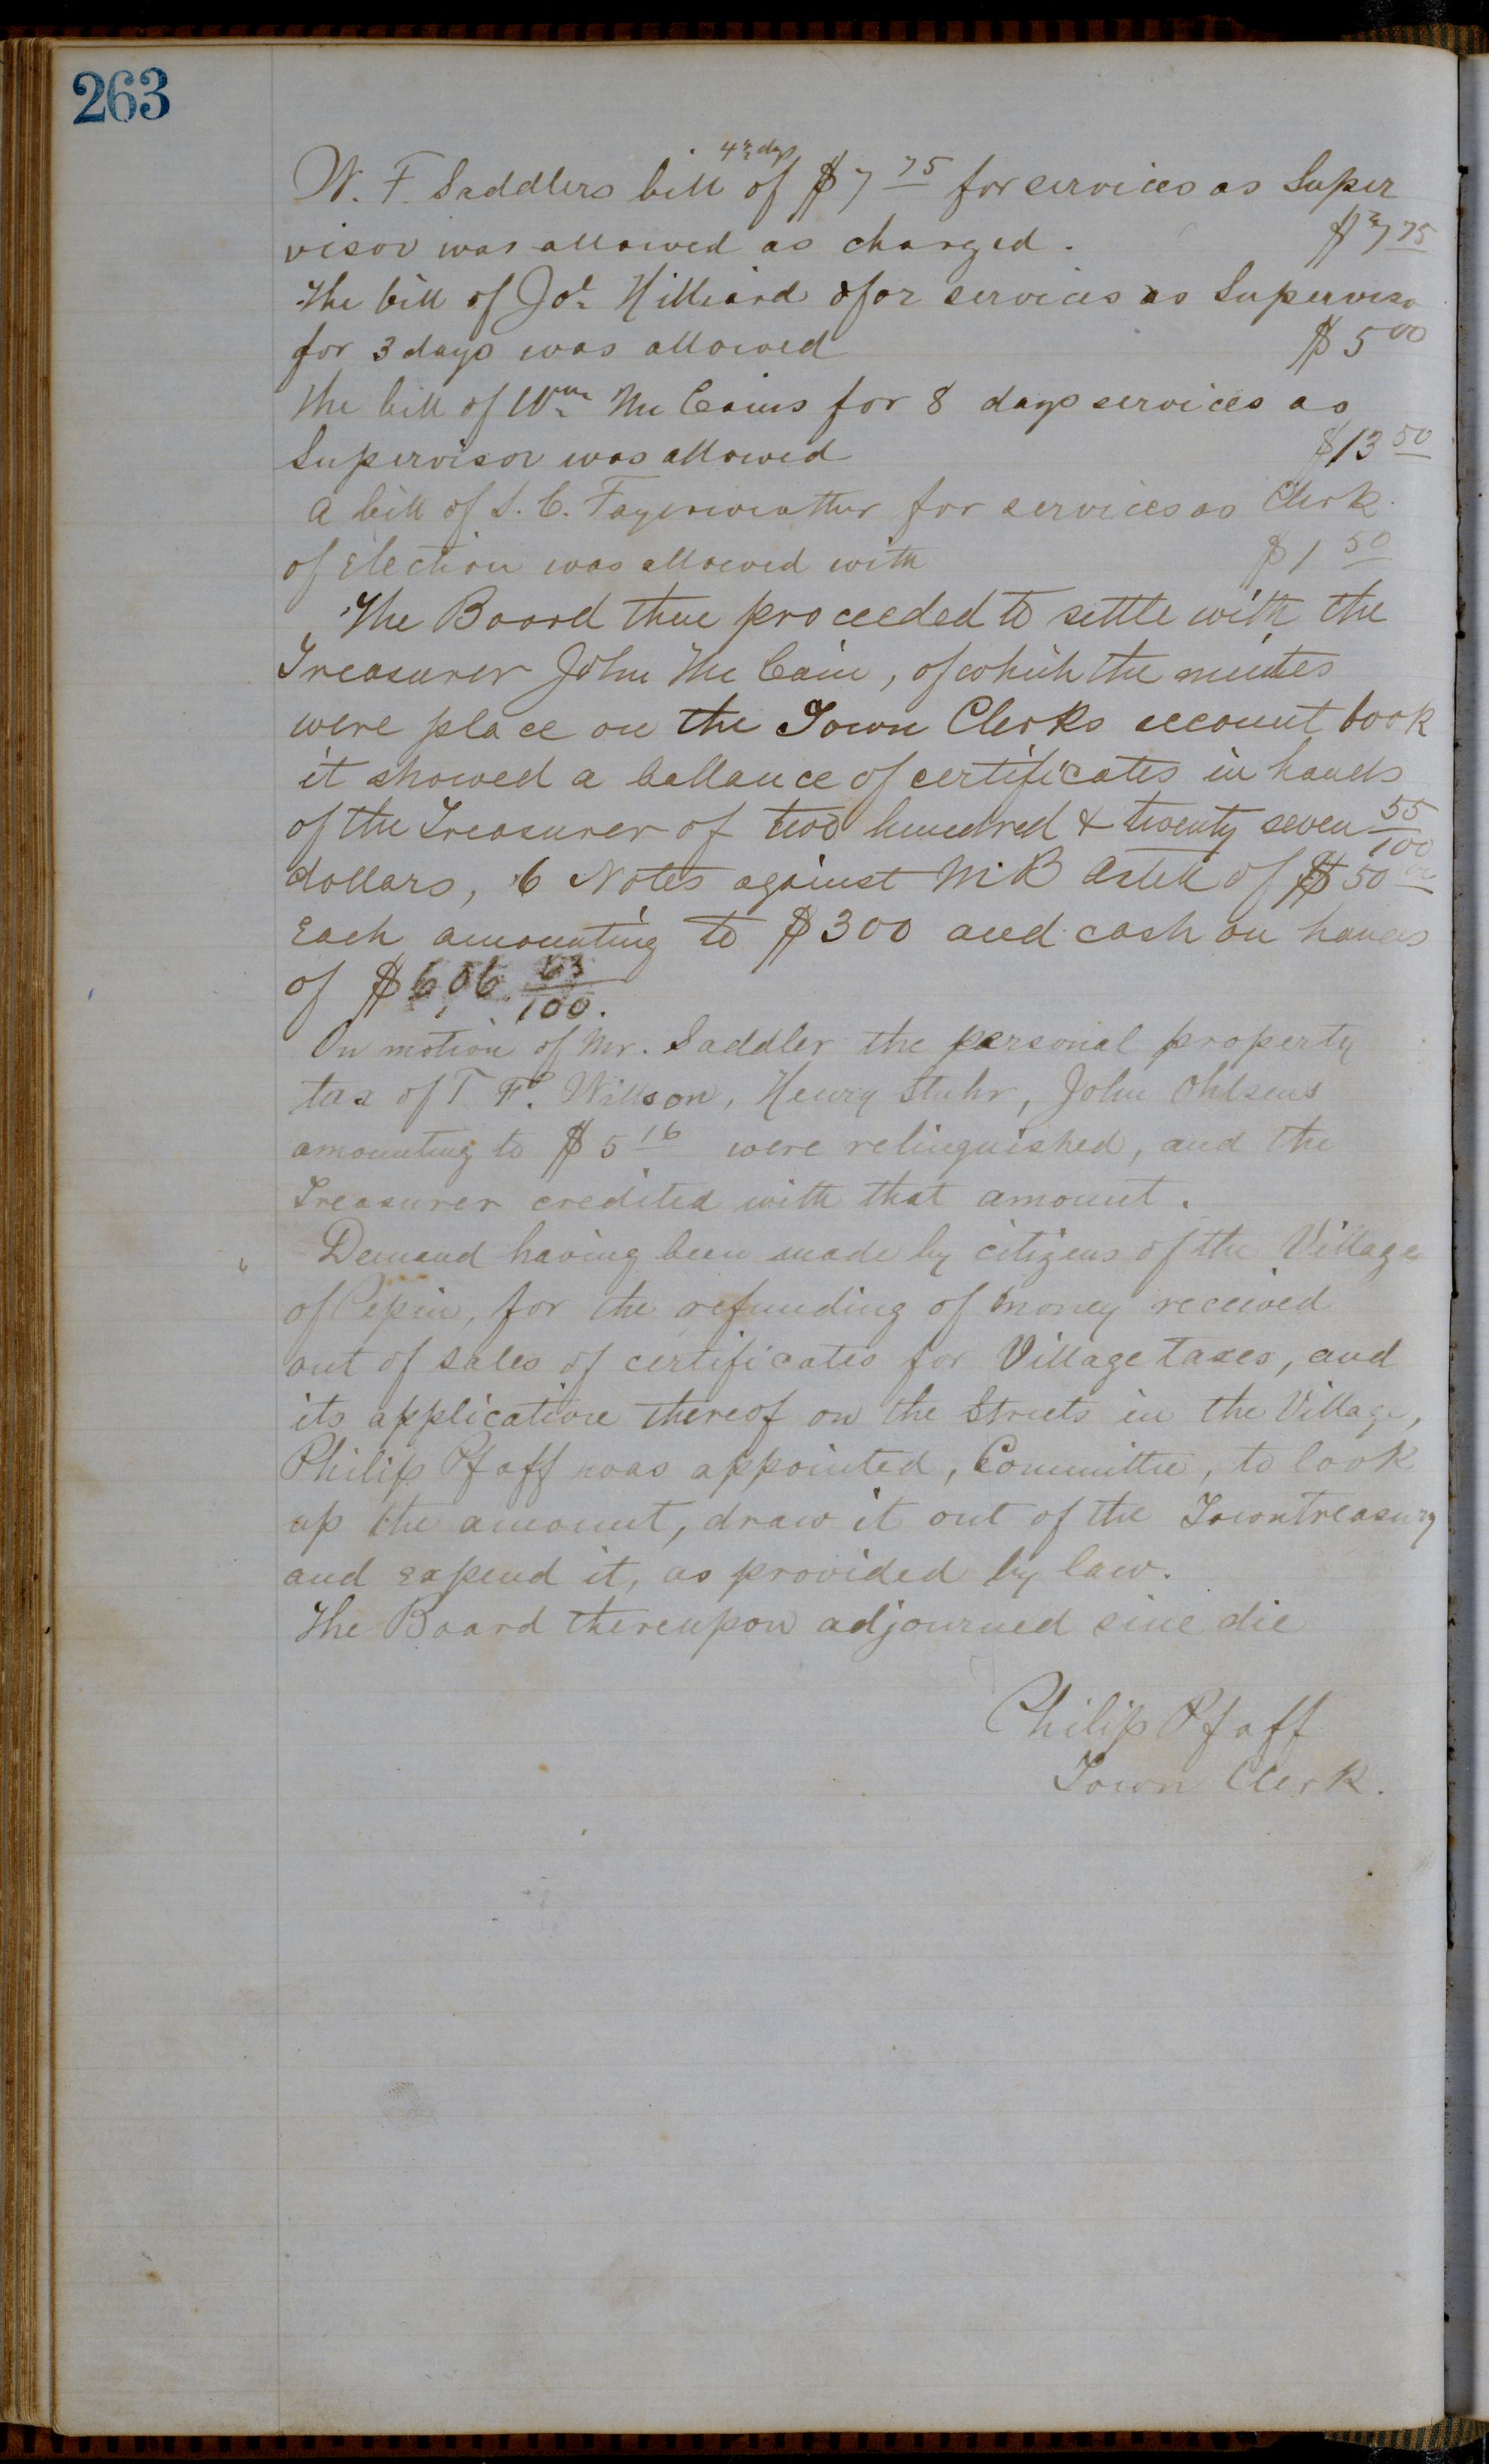 263
4 ½ days
W. F. Saddlers bill of $7 75 for services as Super
visor was allowed as charged. $7 75
The bill of Jos. Hilliard for services as Superviso
for 3 days was allowed $5 00
The bill of Wm Mc Cains for 8 days services as
Supervisor was allowed $13 50
A bill of S. C. Fayerweather for services as Clerk
of Election was allowed with $1 50
The Board then proceeded to settle with the
Treasurer John Mc Cain, of which the minutes
were place on the Town Clerks account book
it showed a ballance of certificates in hands
of the Treasurer of two hundred & twenty seven 55/100
dollars, 6 Notes against M B Axtell of $50 00
Each amounting to $300 and cash on hands
of $606. 63/100.
On motion of Mr. Saddler the personal property
tax of T. F. Willson, Henry Stuhr, John Ohlsens
amounting to $5 16 were relinquished, and the
Treasurer credited with that amount.
Demand having been made by citizens of the Village
of Pepin, for the refunding of money received
out of sales of certificates for Village taxes, and
its application thereof on the Streets in the Village,
Philip Pfaff was appointed, Committee, to look
up the amount, draw it out of the Towntreasury
and expend it, as provided by law.
The Board thereupon adjourned sine die
Philip Pfaff
Town Clerk.